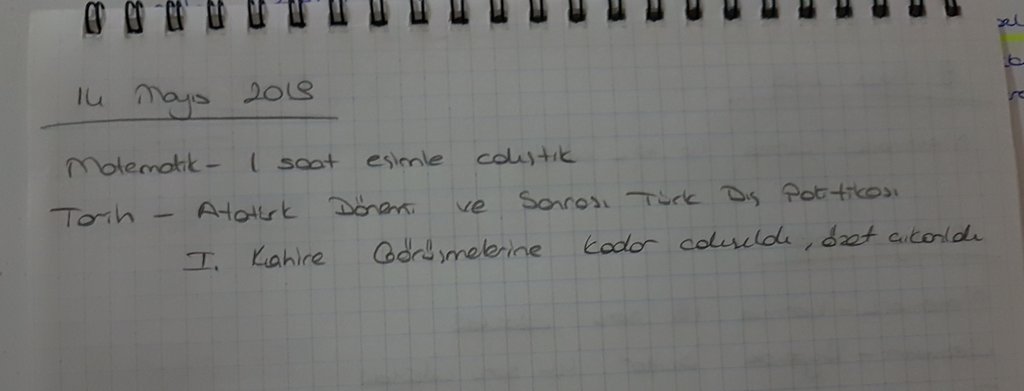 14 Mayıs 2019
Matematik - 1 saat eşimle çalıştık
Tarih - Atatürk Dönemi ve Sonrası Türk Dış Politikası
I. Kahire Görüşmelerine kadar çalışıldı, özet çıkarıldı